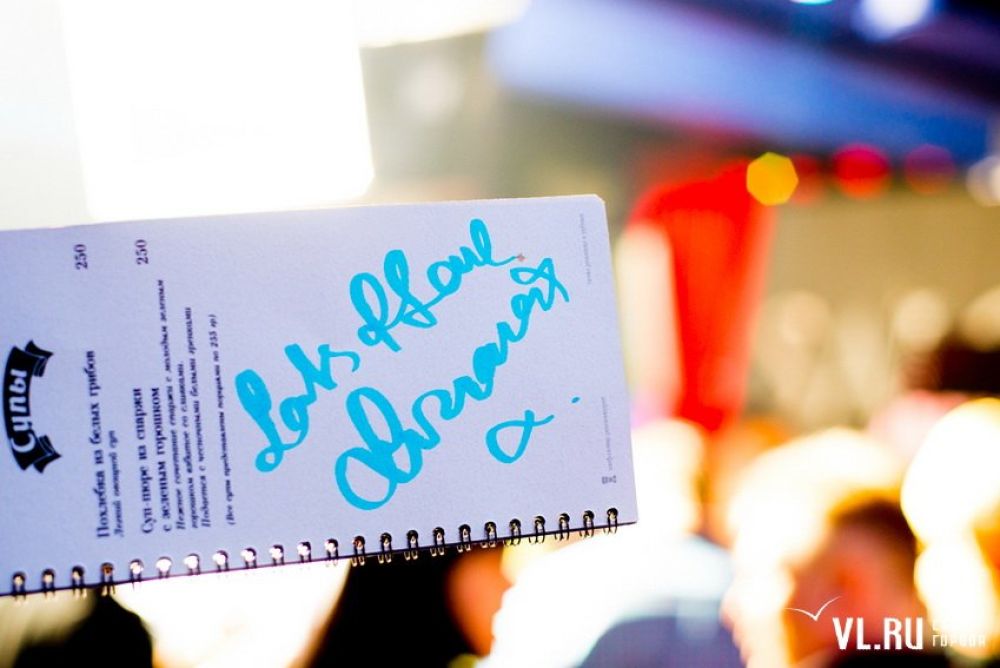 VL.RU
Супы
Похлебка из белых грибов 250
Легкий овощной суп
Суп-пюре из спаржи
с зеленым горошком 250
Нежное сочетание спаржи с молодым зеленым
горошком взбитое со сливками.
Подается с чесночными белыми гренками
(Все супы представлены порциями по 255 гр.)
Lots of Love
x
VL.RU
ГОРОДА